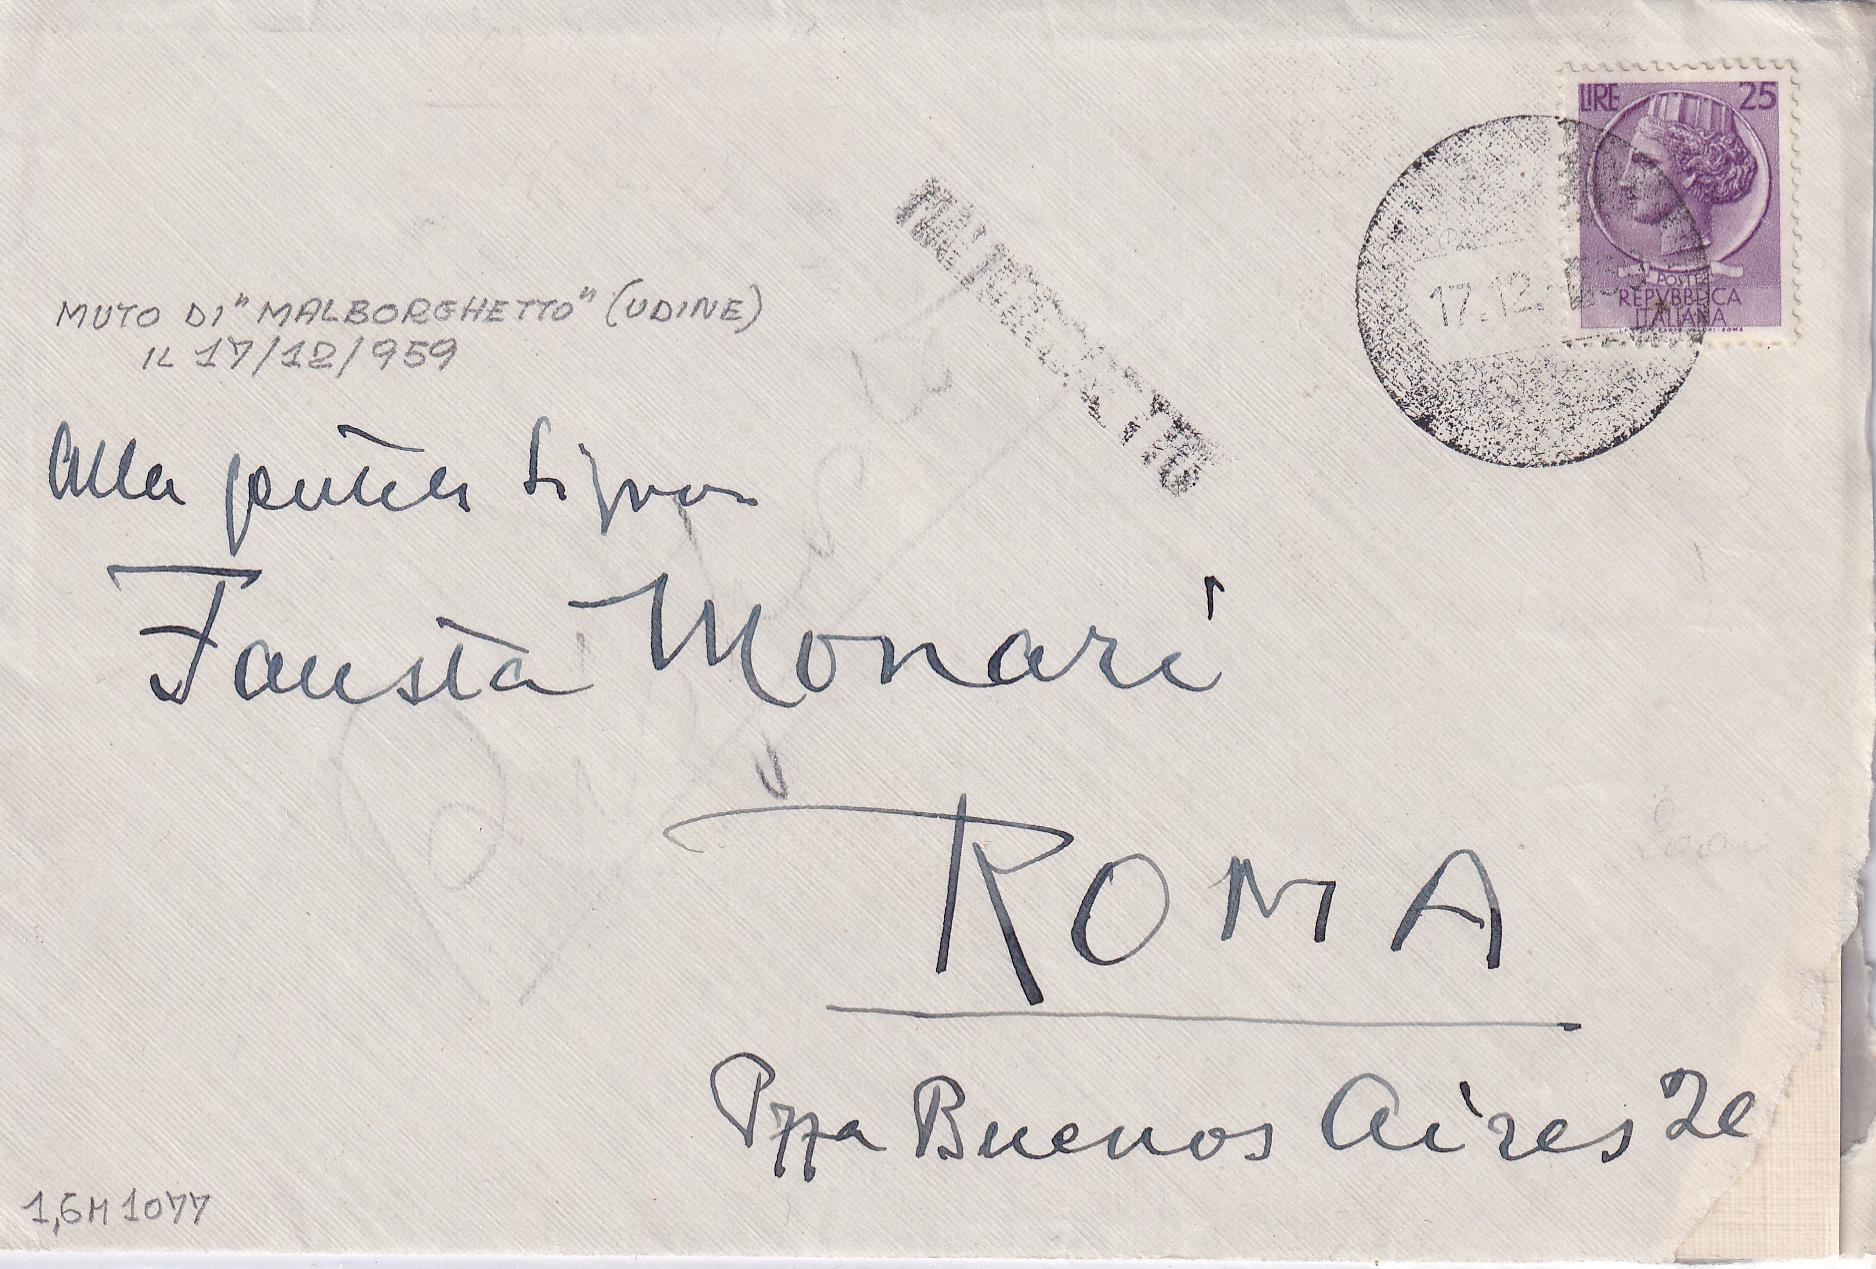 LIRE 25
POSTE
REPVBBLICA
ITALIANA
17.12.
MALBORGHETTO
MUTO DI "MALBORGHETTO" (UDINE)
IL 17/12/959
Alla gentile Signora
Fausta Monari
ROMA
Pzza Buenos Aires 20
1,6M1077